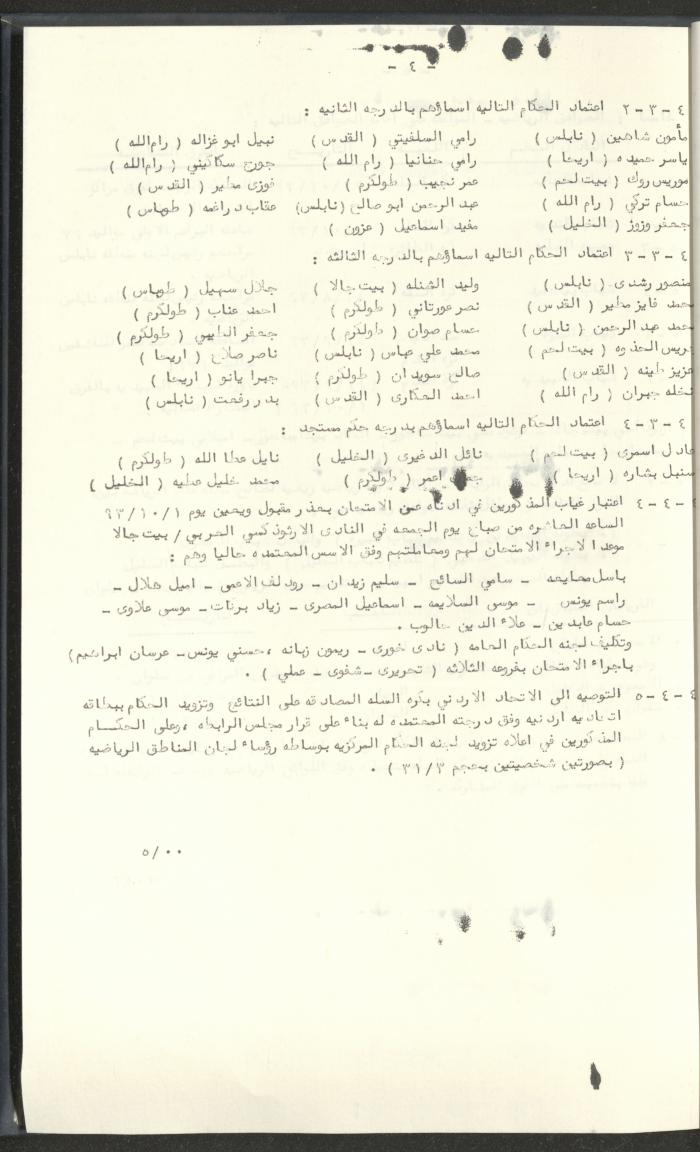 - ٤ -
٤ - ٣ - ٢ اعتماد الحكام التاليه اسماؤهم بالدرجه الثانيه :
مأمون شاهين ( نابلس ) رامي السلفيتي ( القدس ) نبيل ابو غزاله ( رام الله )
ياسر حميده ( اريحا ) رامي حنانيا ( رام الله ) جورج سكاكيني ( رام الله )
موريس روك ( بيت لحم ) عمر نجيب ( طولكرم ) فوزى مطير ( القدس )
حسام تركي ( رام الله ) عبد الرحمن ابو صالح ( نابلس ) عقاب دراغمه ( طوباس )
جعفر وزوز ( الخليل ) مفيد اسماعيل ( عزون )
٤ - ٣ - ٣ اعتماد الحكام التاليه اسماؤهم بالدرجه الثالثه :
منصور رشدى ( نابلس ) وليد الشتله ( بيت جالا ) جلال سهيل ( طوباس )
محمد فايز مطير ( القدس ) نصر عورتاني ( طولكرم ) احمد عناب ( طولكرم )
محمد عبد الرحمن ( نابلس ) حسام صوان ( طولكرم ) جعفر الطيبي ( طولكرم )
جريس الحذوه ( بيت لحم ) محمد علي عباس ( نابلس ) ناصر صلاح ( اريحا )
عزيز طينه ( القدس ) صالح سويدان ( طولكرم ) جبرا يانو ( اريحا )
نخله جبران ( رام الله ) احمد الحكارى ( القدس ) بدر رفعت ( نابلس )
٤ - ٣ - ٤ اعتماد الحكام التاليه اسماؤهم بدرجه حكم مستجد :
عادل اسمرى ( بيت لحم ) نائل الدغيرى ( الخليل ) نايل عطا الله ( طولكرم )
سنبل بشاره ( اريحا ) اعمر ( طولكرم ) محمد خليل عطيه ( الخليل )
٤ - ٤ - ٤ اعتبار غياب المذكورين في ادناه عن الامتحان بعذر مقبول ويعين يوم ٩٣/١٠/١
الساعه العاشره من صباح يوم الجمعه في النادى الارثوذكسي العربي / بيت جالا
موعدا لاجراء الامتحان لهم ومعاملتهم وفق الاسس المعتمده حاليا وهم :
باسل معايعه - سامي السائح - سليم زيدان - رودلف الاعمى - اميل هلال -
راسم يونس - موسى السلايمه - اسماعيل المصرى - زياد بركات - موسى علاوى -
حسام عابدين - علاء الدين حالوب .
وتكليف لجنه الحكام العامه ( نادى خورى - ريمون زبانه ، حسني يونس - عرسان ابراهيم )
باجراء الامتحان بفروعه الثلاثه ( تحريرى - شفوى - عملي ) .
٤ - ٤ - ٥ التوصيه الى الاتحاد الاردني بكره السله المصادقه على النتائج وتزويد الحكام ببطاقه
اتحاديه اردنيه وفق درجته المعتمده له بناء على قرار مجلس الرابطه ، وعلى الحكام
المذكورين في اعلاه تزويد لجنه الحكام المركزيه بوساطه رؤساء لجان المناطق الرياضيه
( بصورتين شخصيتين بحجم ٣١/٣ ) .
٥/٠٠